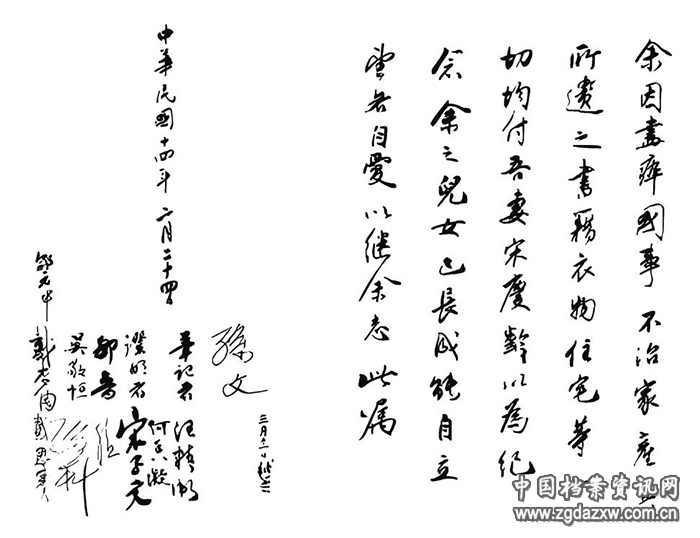 余因盡瘁國事不治家產其
所遺之書籍衣物住宅等一
切均付吾妻宋慶齡以為紀
念余之兒女已長成能自立
望各自愛以繼余志此囑
孫文
三月十一日補簽
筆記者 汪精衛
何香凝
證明者 宋子文
鄒魯
吳敬恒 孫科
戴季陶 戴恩賽
邵元冲
中華民國十四年 二月二十四日
中国档案资讯网
www.zgdazxw.com.cn